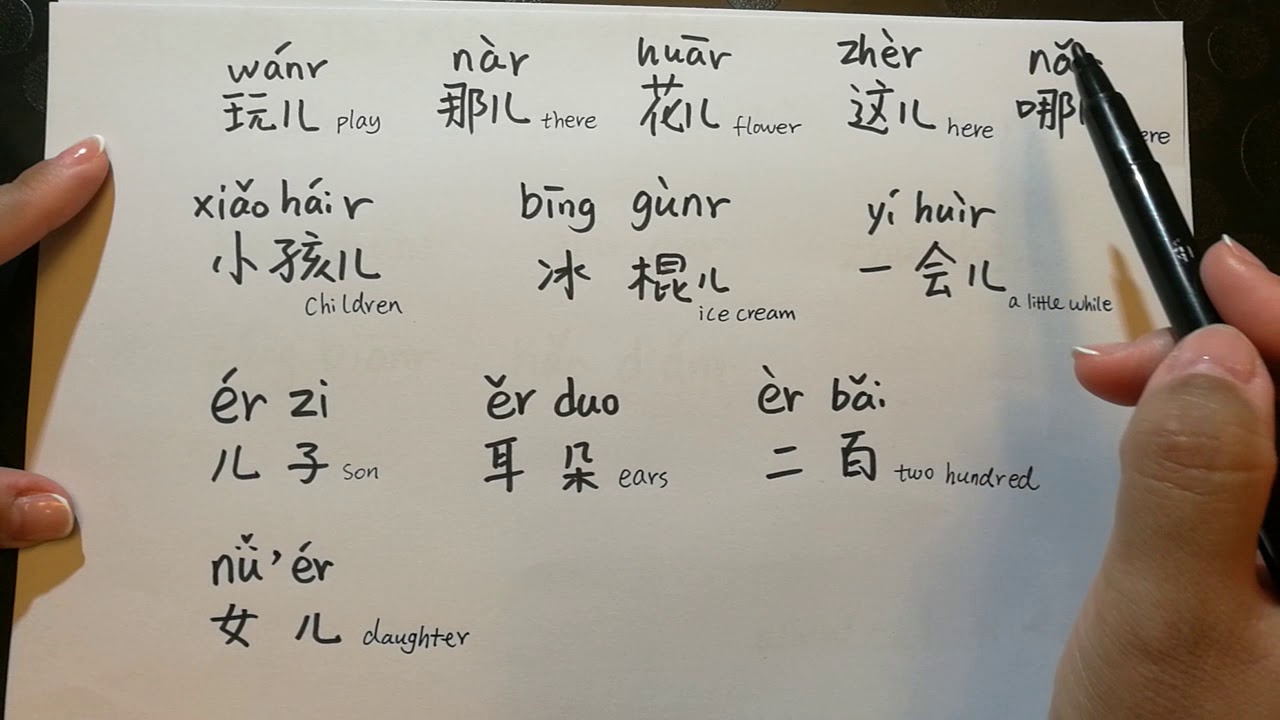 wánr nàr huār zhèr
玩儿 play 那儿 there 花儿 flower 这儿 here 哪儿
xiǎo hái r bīng gùnr yí huìr
小孩儿 冰 棍儿 一会儿
children ice cream a little while
ér zi ěr duo èr bǎi
儿子 son 耳朵 ears 二百 two hundred
nǚ'ér
女儿 daughter